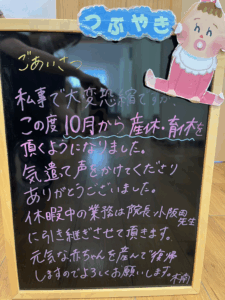 つぶやき
ごあいさつ
私事で大変恐縮ですが、
この度10月から産休・育休を
頂くようになりました。
気遣って声をかけてくださり
ありがとうございました。
休暇中の業務は院長 小阪田
先生
に引き継ぎさせて頂きます。
元気な赤ちゃんを産んで復帰
しますのでよろしくお願いします。